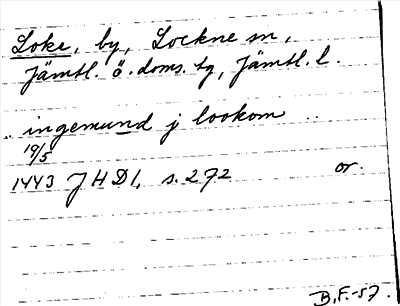 Loke, by, Lockne sn,
Jämtl. ö. doms. tg, Jämtl. l.
.. ingemund j lookom ..
19/5
1443 JHD1, s. 272 or.
B.F.-57.